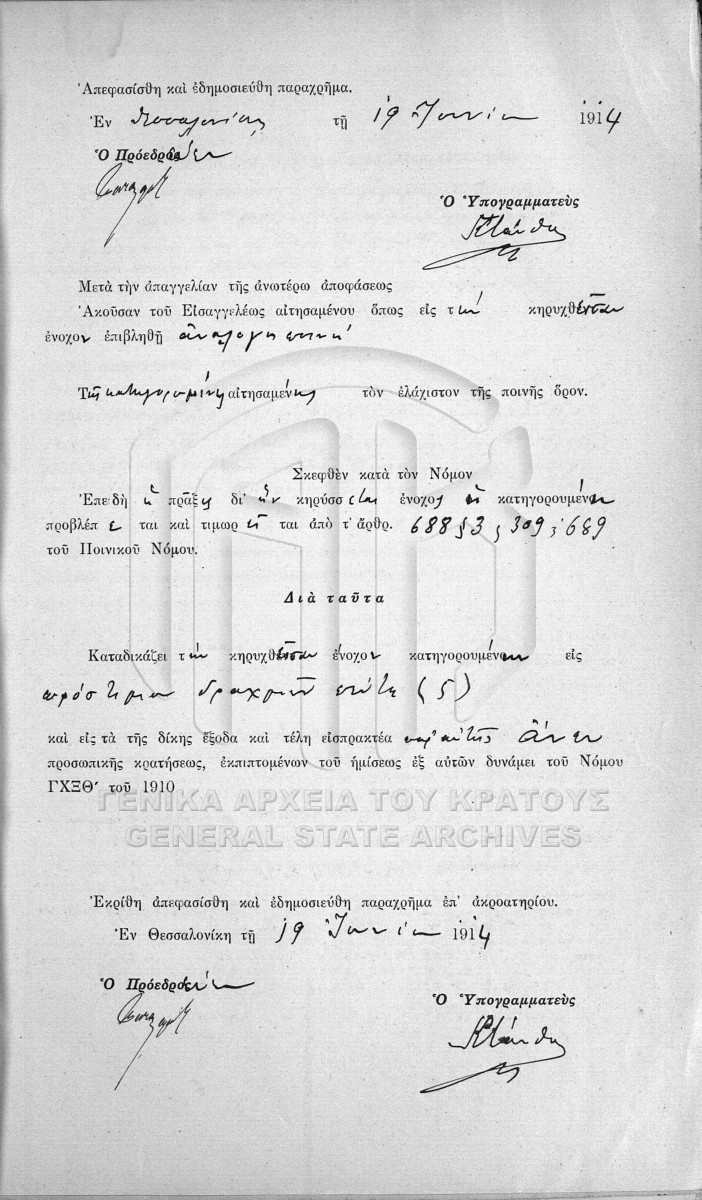 Ἀπεφασίσθη καὶ ἐδημοσιεύθη παραχρῆμα.
Ἐν Θεσσαλονίκῃ τῇ 19 Ἰουνίου 1914
Ὁ Πρόεδρος
Ὁ Ὑπογραμματεὺς
Μετὰ τὴν ἀπαγγελίαν τῆς ἀνωτέρω ἀποφάσεως
Ἀκοῦσαν τοῦ Εἰσαγγελέως αἰτησαμένου ὅπως εἰς τὴν κηρυχθεῖσαν
ἔνοχον ἐπιβληθῇ ἀνάλογος ποινή
Τῆς κατηγορουμένης αἰτησαμένης τὸν ἐλάχιστον τῆς ποινῆς ὅρον.
Σκεφθὲν κατὰ τὸν Νόμον
Ἐπειδὴ ἡ πρᾶξις δι' ἣν κηρύσσεται ἔνοχος ἡ κατηγορουμένη
προβλέπεται καὶ τιμωρεῖται ἀπὸ τ' ἄρθρ. 688 § 3, 309, 689
τοῦ Ποινικοῦ Νόμου.
Διὰ ταῦτα
Καταδικάζει τὴν κηρυχθεῖσαν ἔνοχον κατηγορουμένην εἰς
πρόστιμον δραχμῶν πέντε (5)
καὶ εἰς τὰ τῆς δίκης ἔξοδα καὶ τέλη εἰσπρακτέα παρ' αὐτῆς ἄνευ
προσωπικῆς κρατήσεως, ἐκπιπτομένων τοῦ ἡμίσεως ἐξ αὐτῶν δυνάμει τοῦ Νόμου
ΓΧΞΘʹ τοῦ 1910
ΓΕΝΙΚΑ ΑΡΧΕΙΑ ΤΟΥ ΚΡΑΤΟΥΣ
GENERAL STATE ARCHIVES
Ἐκρίθη ἀπεφασίσθη καὶ ἐδημοσιεύθη παραχρῆμα ἐπ' ἀκροατηρίου.
Ἐν Θεσσαλονίκῃ τῇ 19 Ἰουνίου 1914
Ὁ Πρόεδρος
Ὁ Ὑπογραμματεὺς